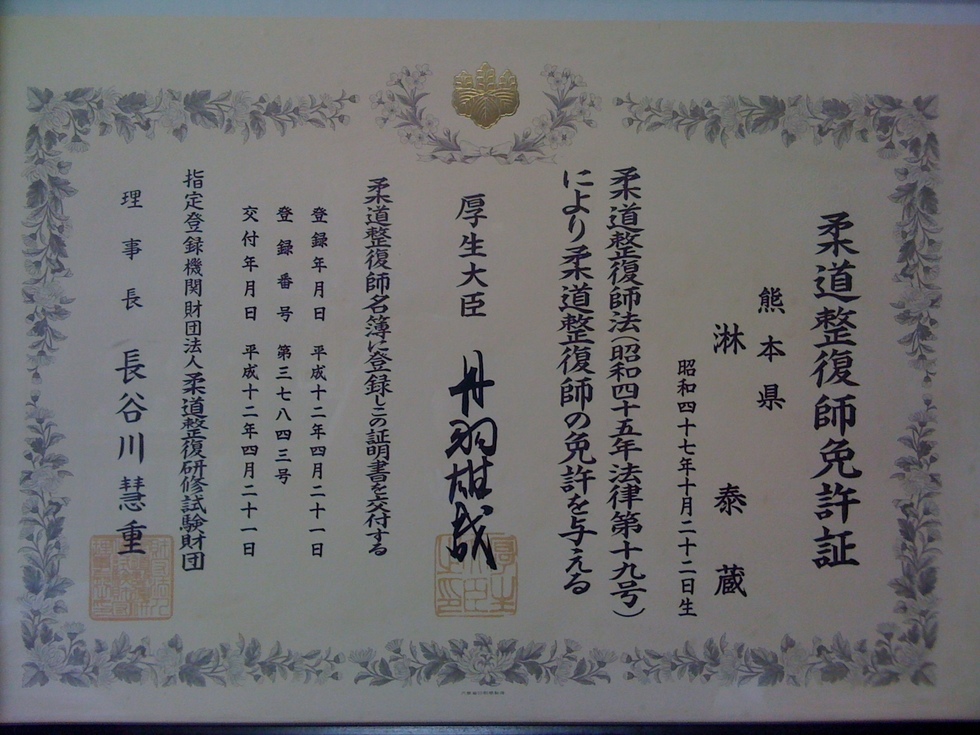 柔道整復師免許証
熊本県
淋 泰蔵
昭和四十七年十月二十二日生
柔道整復師法(昭和四十五年法律第十九号)
により柔道整復師の免許を与える
厚生大臣 丹羽雄哉
柔道整復師名簿に登録しこの証明書を交付する
登録年月日 平成十二年四月二十一日
登録番号 第三七八四三号
交付年月日 平成十二年四月二十一日
指定登録機関財団法人柔道整復研修試験財団
理事長 長谷川慧重